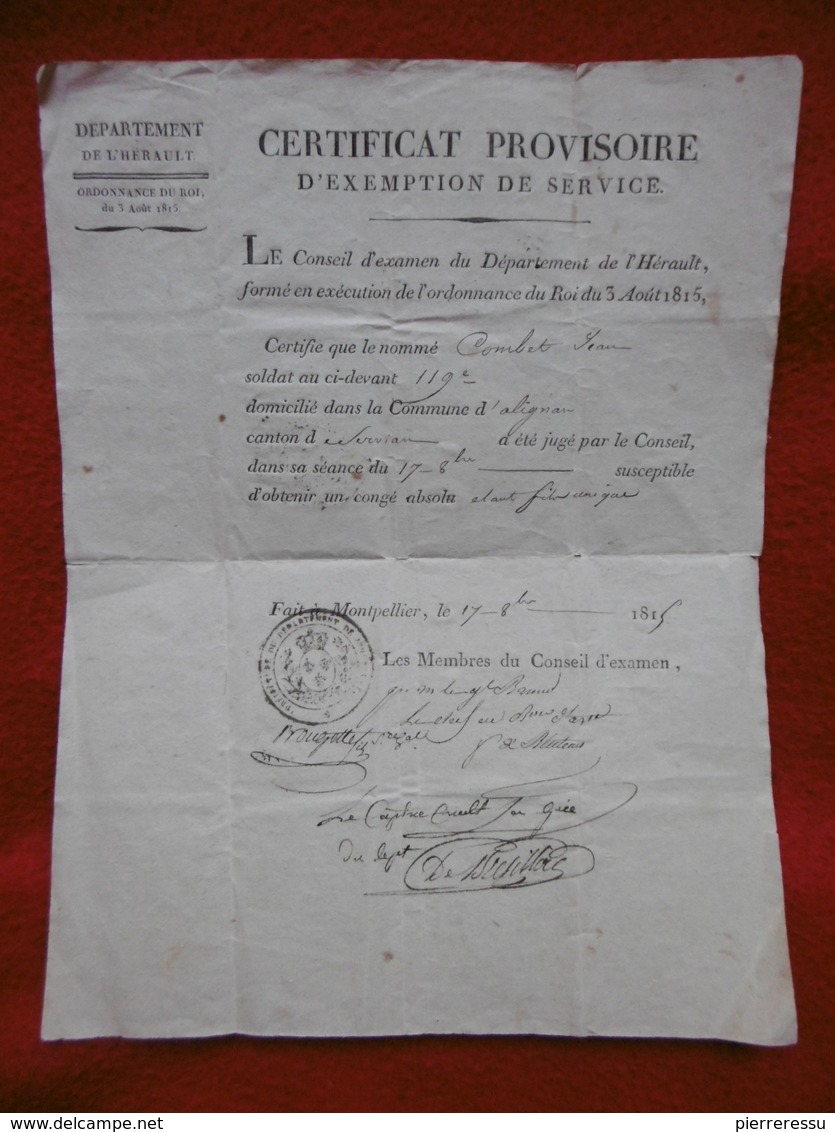 DEPARTEMENT
DE L'HÉRAULT.
ORDONNANCE DU ROI,
du 3 Août 1815.
CERTIFICAT PROVISOIRE
D'EXEMPTION DE SERVICE.
LE Conseil d'examen du Département de l'Hérault,
formé en exécution de l'ordonnance du Roi du 3 Août 1815,
Certifie que le nommé Combet Jean
soldat au ci-devant 119e
domicilié dans la Commune d'alignan
canton de Servian a été jugé par le Conseil,
dans sa séance du 17-8bre susceptible
d'obtenir un congé absolu étant fils unique
Fait à Montpellier, le 17-8bre 1815
Les Membres du Conseil d'examen,
Le Cap
du dept
De
delcampe.net
pierreressu